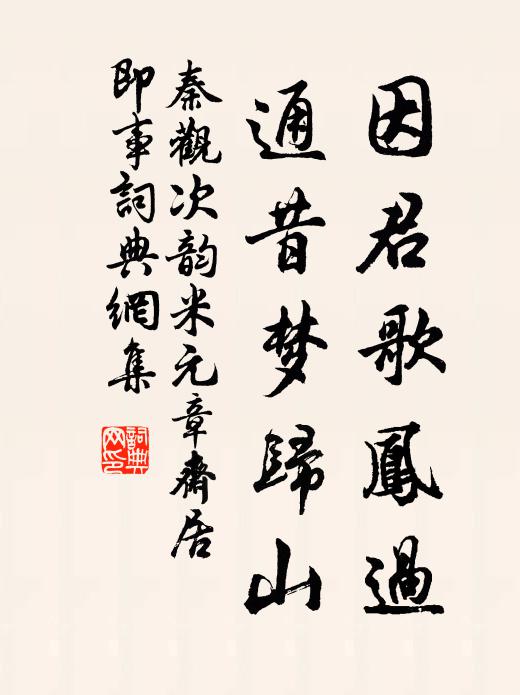 因君歌鳳過
通昔梦歸山
秦觀次韵米元章齋居
即事詞典網集
詞典網印